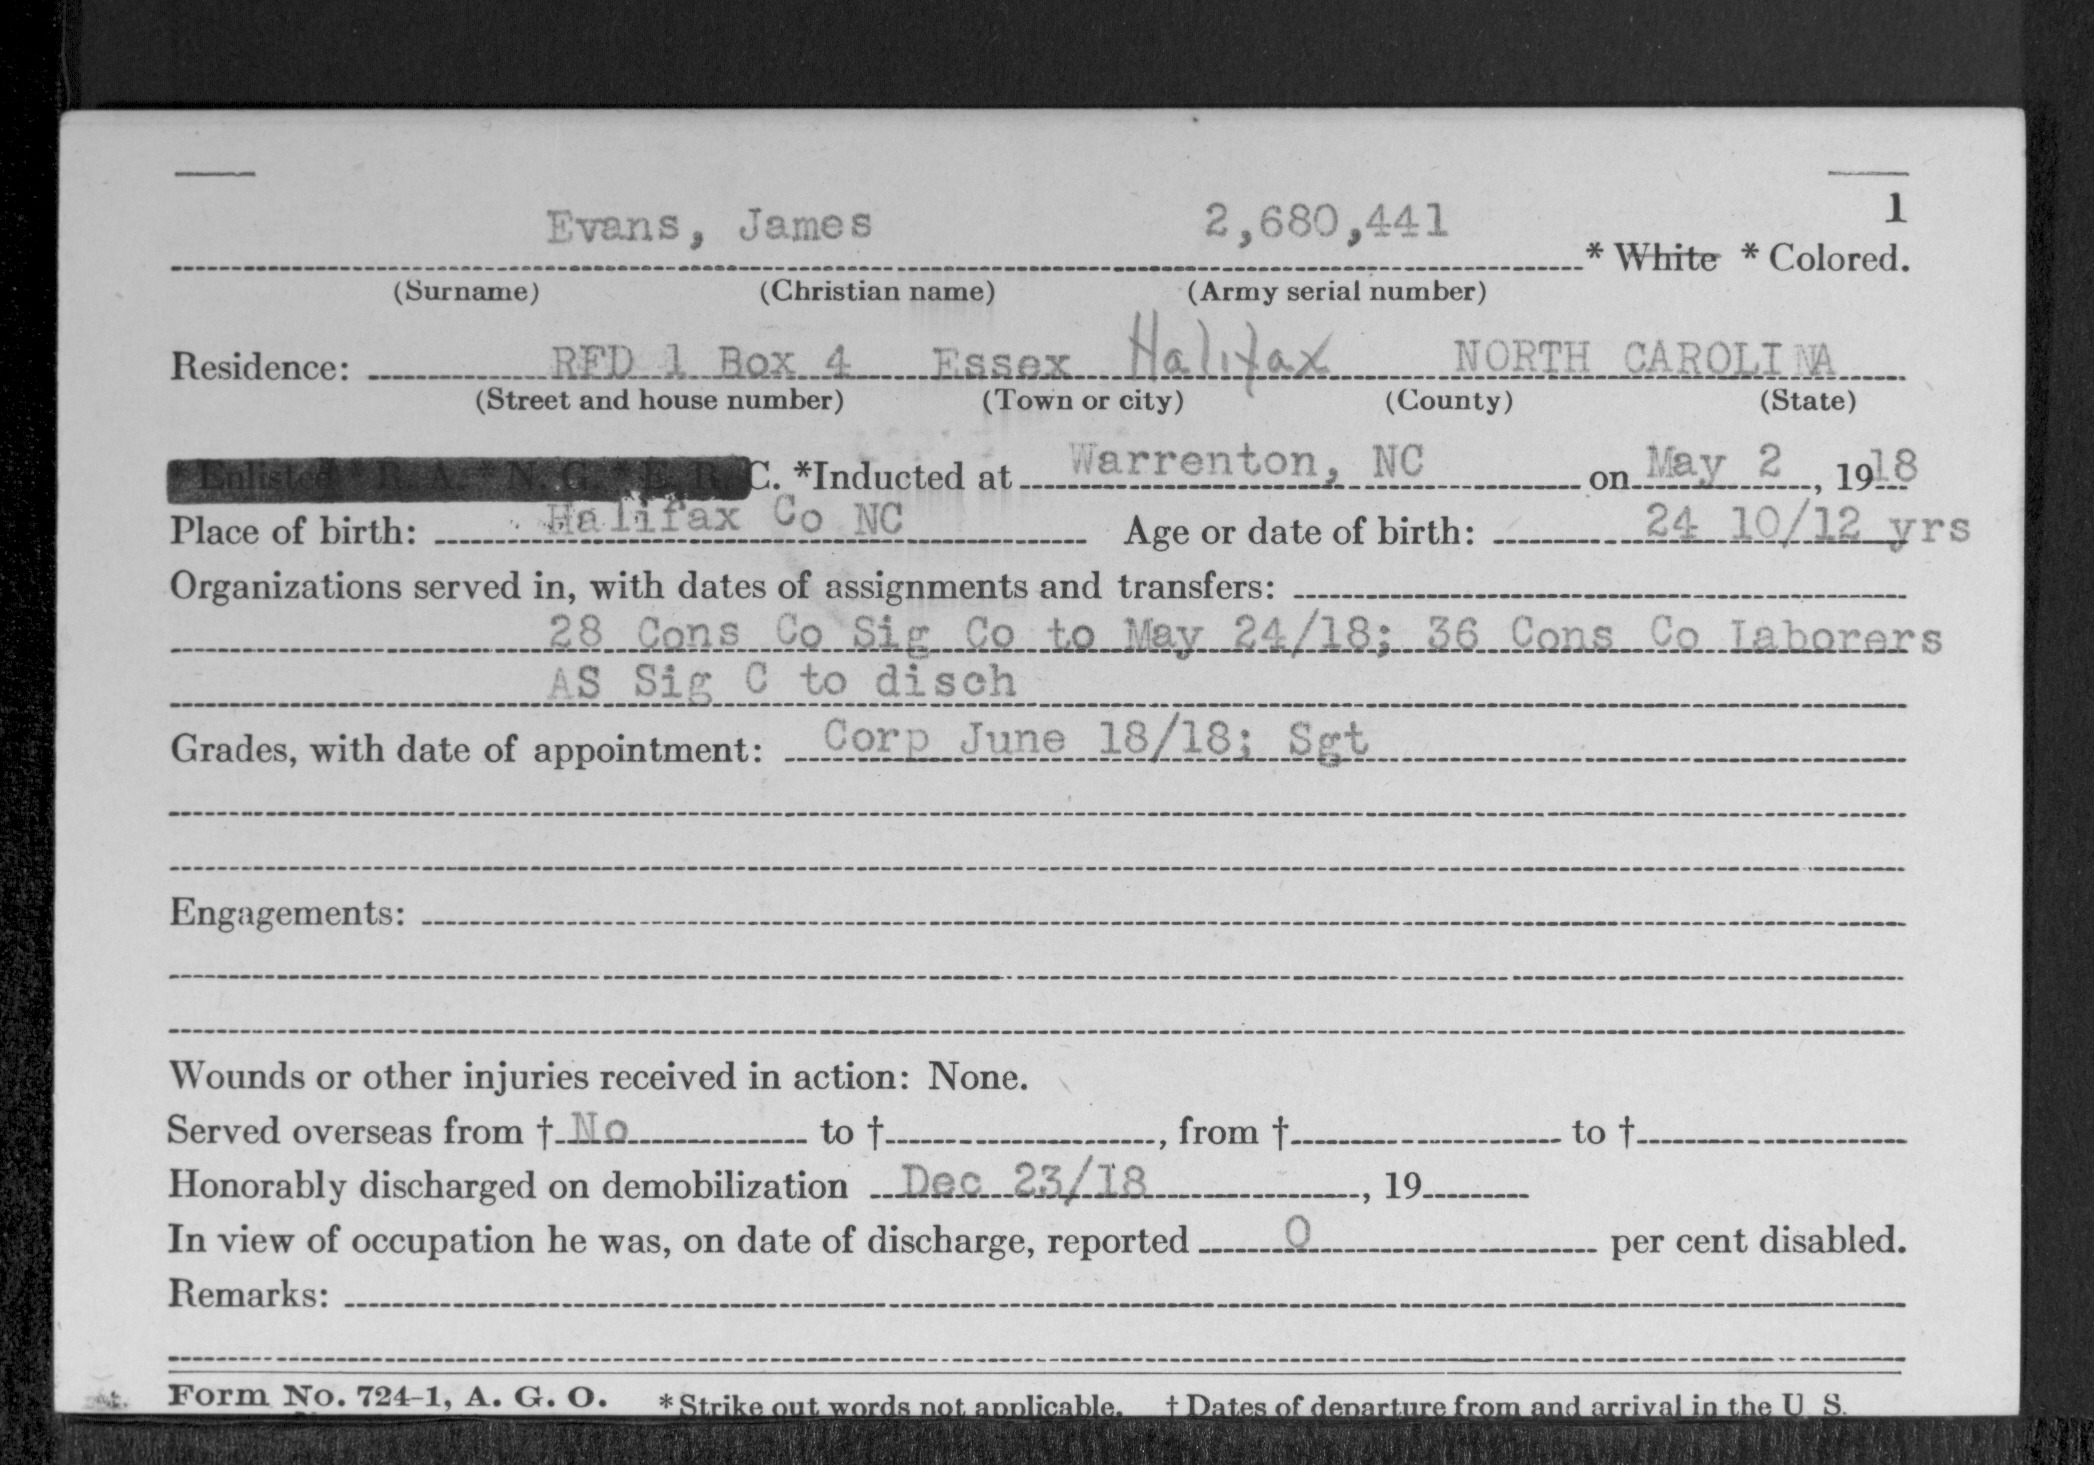 1
Evans, James 2,680,441 * White * Colored.
(Surname) (Christian name) (Army serial number)
Residence: RFD 1 Box 4 Essex Halifax NORTH CAROLINA
(Street and house number) (Town or city) (County) (State)
* Enlisted * R. A. * N. G. * E. R. C. *Inducted at Warrenton, NC on May 2, 1918
Place of birth: Halifax Co NC Age or date of birth: 24 10/12 yrs
Organizations served in, with dates of assignments and transfers:
28 Cons Co Sig Co to May 24/18; 36 Cons Co Laborers
AS Sig C to disch
Grades, with date of appointment: Corp June 18/18; Sgt
Engagements:
Wounds or other injuries received in action: None.
Served overseas from † No to †, from † to †
Honorably discharged on demobilization Dec 23/18, 19
In view of occupation he was, on date of discharge, reported 0 per cent disabled.
Remarks:
Form No. 724-1, A. G. O. * Strike out words not applicable. † Dates of departure from and arrival in the U. S.